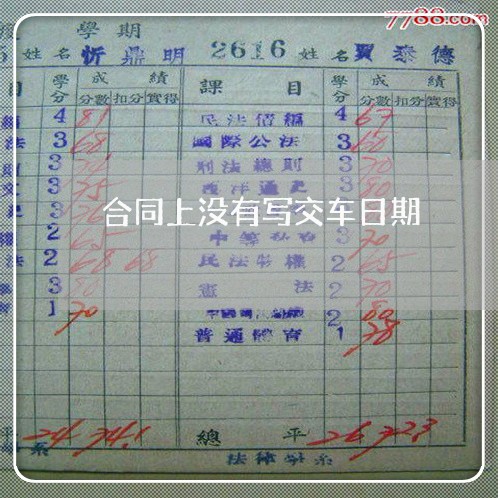 7788.com
學期
姓名 忻鼎明 2616 姓名 賈泰德
目 學分 成績 課目 學分 成績
分數 扣分 實得 分數 扣分 實得
4 81 民法債編 4 67
法 3 68 國際公法 3 60
3 刑法總則 3 70
3 75 西洋通史 3 80
3
合同上没有写交车日期
2 65 3 70
法 2 68 68 民法物權 2 65
3 80 憲法 2 70
1 70 2 80
普通體育 1 78
平 24 74.1 總平 26 72.3
系 法律學系